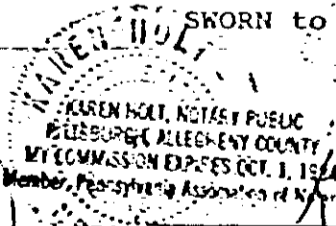 SWORN to
KAREN HOLT
KAREN HOLT, NOTARY PUBLIC
PITTSBURGH, ALLEGHENY COUNTY
MY COMMISSION EXPIRES OCT. 1,
Member, Pennsylvania Association of